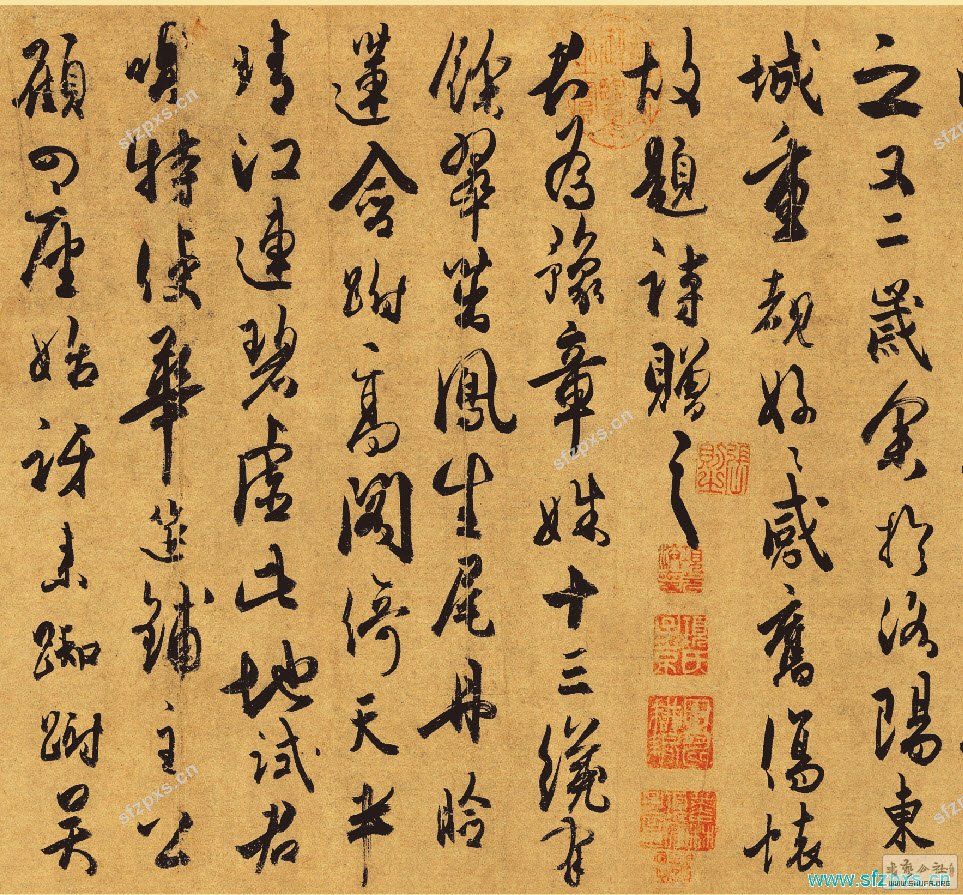 之又二歲余於洛陽東
城重覩好〻感舊傷懷
故題詩贈之
君為豫章姝十三纔有
餘翠茁鳳生尾丹臉
蓮含跗高閣倚天半
晴江連碧虛此地試君
唱特使華筵鋪主公
顧四座始訝来踟蹰吳
sfzpxs.cn
sfzpxs.cn
sfzpxs.cn
sfzpxs.cn
sfzpxs.cn
www.sfzpxs.cn
WWW.SHUFA.ORG